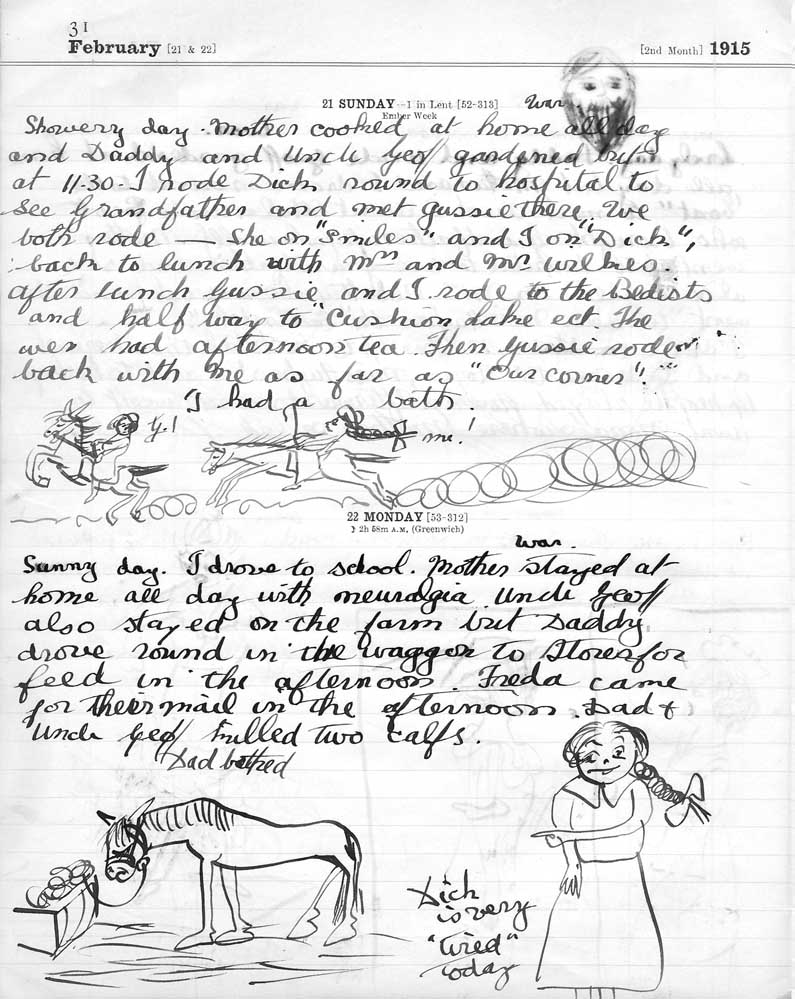 31
February [21 & 22] [2nd Month] 1915
21 SUNDAY—1 in Lent [52-313]
Ember Week
War.
Showery day. Mother cooked at home all day
and Daddy and Uncle Geoff. gardened but
at 11.30. I rode Dick round to hospital to
see Grandfather and met Gussie there. We
both rode — She on "Smiles" and I on "Dick",
back to lunch with Mrs and Mr. Wilkes.
After lunch Gussie and I rode to the
and half way to "Cushion Lake ect. The
wer had afternoon tea. Then Gussie rode
back with me as far as "Our corner".
I had a bath.
G.!
me!
22 MONDAY [53-312]
2h 58m A.M. (Greenwich)
War.
Sunny day. I drove to school. Mother stayed at
home all day with neuralgia. Uncle Geoff
also stayed on the farm but Daddy
drove round in the waggon to Stores for
feed in the afternoon. Freda came
for their mail in the afternoon. Dad &
Uncle Geoff killed two calfs.
Dad bathed
Dick
is very
"tired"
today